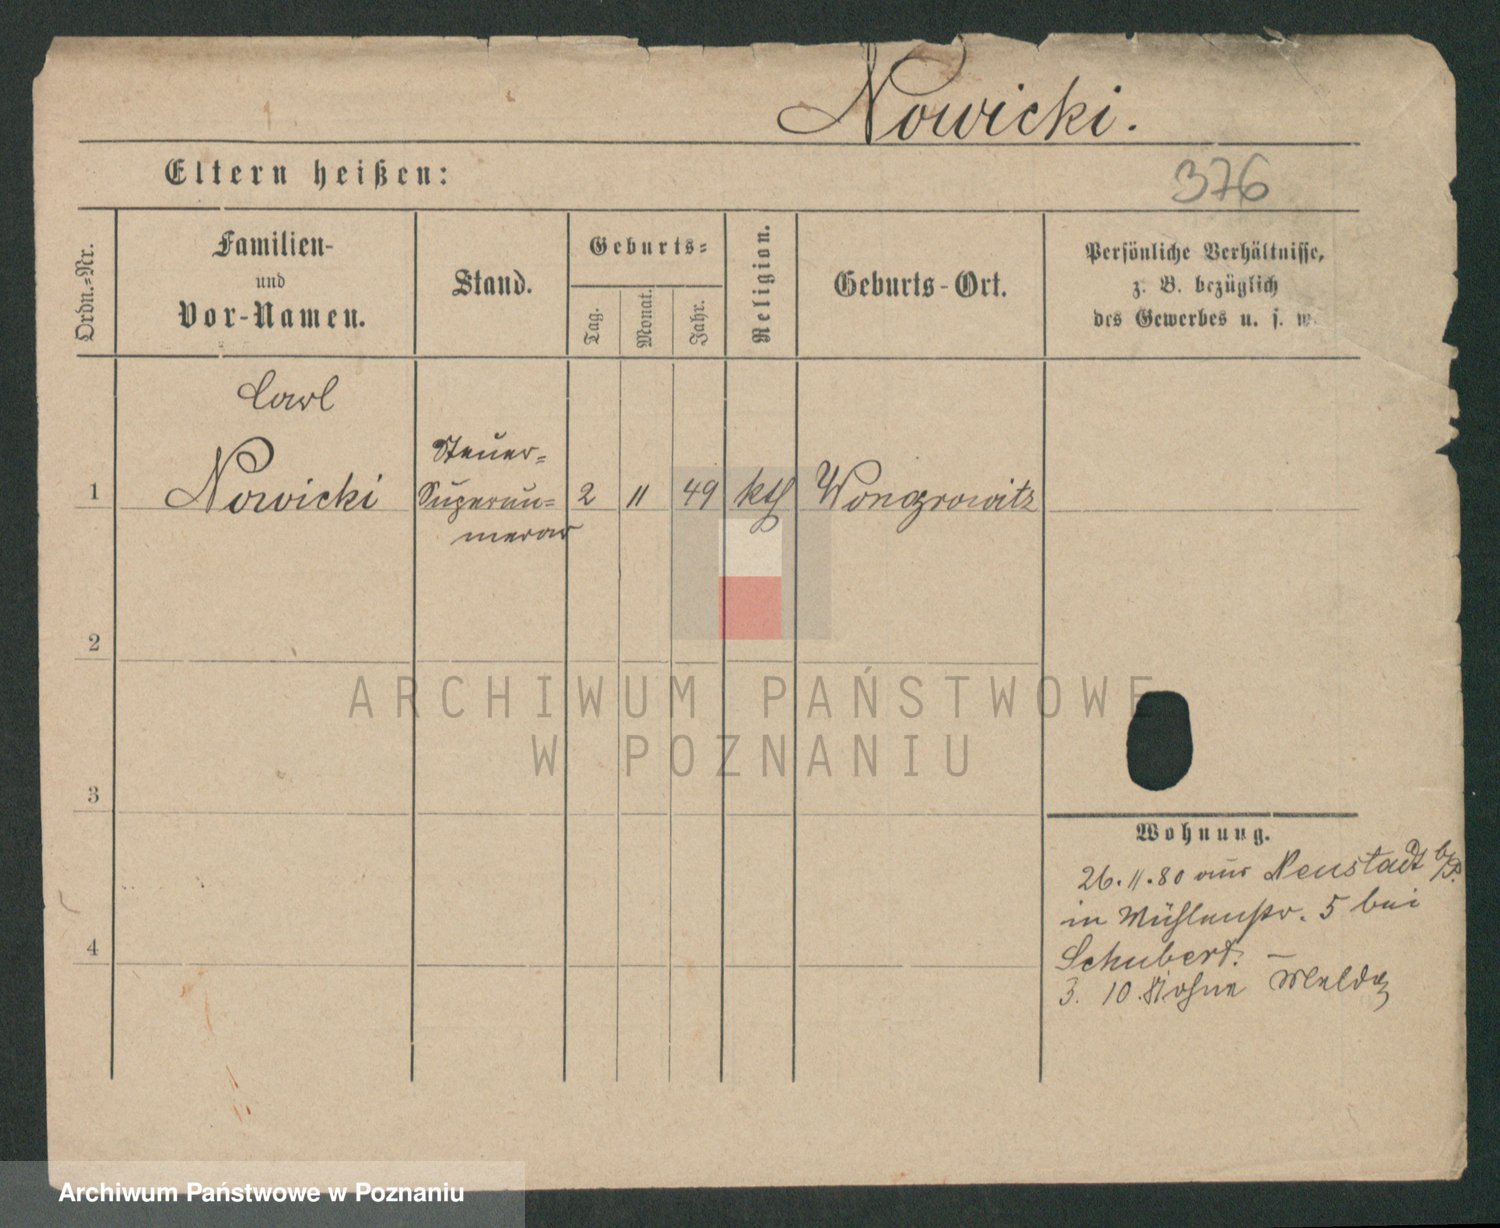 Nowicki.
Eltern heißen:
376
Ordn.=Nr.
Familien-
und
Vor-Namen.
Stand.
Geburts=
Tag.
Monat.
Jahr.
Religion.
Geburts-Ort.
Persönliche Verhältnisse,
z. B. bezüglich
des Gewerbes u. s. w.
Carl
1 Nowicki
Steuer=
Supernu=
merar
2 11 49 kth Wongrowitz
2
3
4
ARCHIWUM PAŃSTWOWE
W POZNANIU
Wohnung.
26.11.80 aus Neustadt b/P.
in Mühlenstr. 5 bei
Schubert. —
3. 10. 81 ohne Meldg
Archiwum Państwowe w Poznaniu